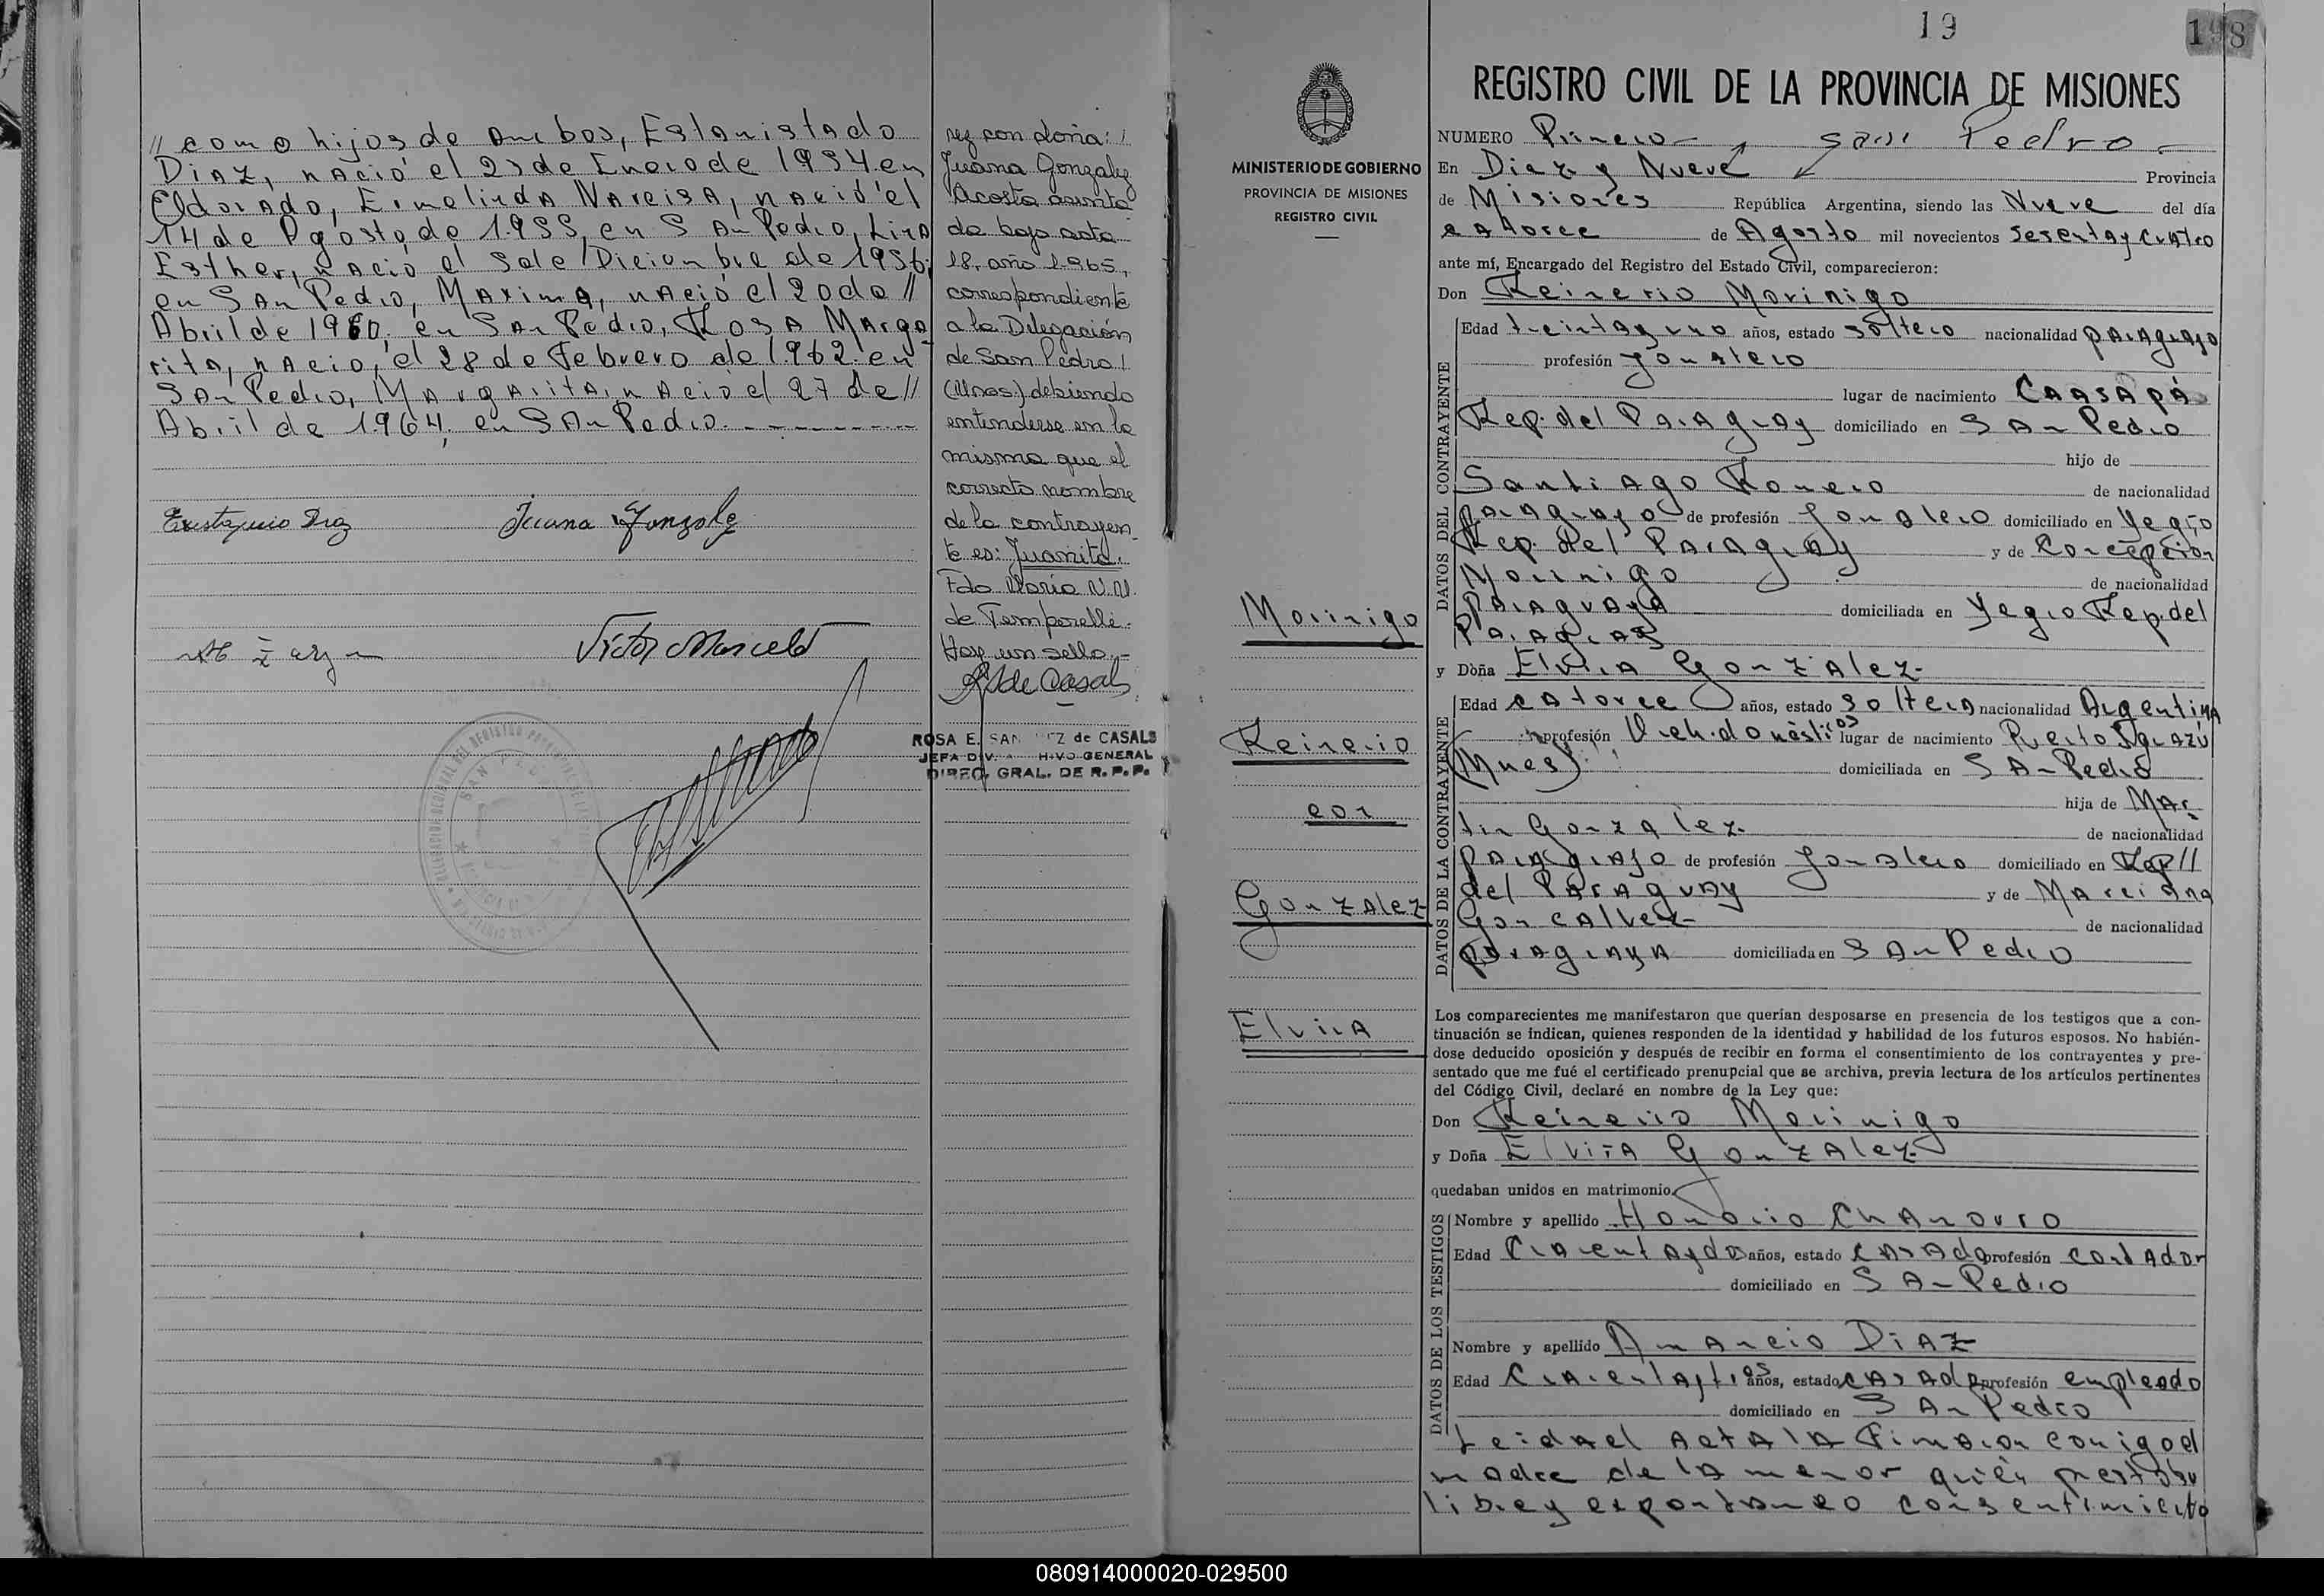 // como hijos de ambos, Estanislado
Diaz, nació el 23 de Enero de 1954 en
Eldorado, Ermelinda Narcisa, nació el
14 de Agosto de 1955, en San Pedro, Lira
Esther, nació el 5 de Diciembre de 1956,
en San Pedro, Maxima, nació el 20 de //
Abril de 1960, en San Pedro, Rosa Marga
rita, nacio, el 28 de Febrero de 1962 en
San Pedro, Margarita, nació el 27 de //
Abril de 1964, en San Pedro.
Juana Gonzale
Victor Marcelo
rez con doña:
Juana Gonzalez
Acosta asenta
da bajo acta
18, año 1965,
correspondiente
a la Delegación
de San Pedro
(Mnes.) debiendo
entenderse en la
misma que el
correcto nombre
de la contrayen
te es: Juanita.
Fdo María N.N.
de Temporelli.
Hay un sello.-
RSde Casals
ROSA E. SAN EZ de CASALS
JEFA DIV. A HIVO GENERAL
DIREC. GRAL. DE R. P. P.
19
198
MINISTERIO DE GOBIERNO
PROVINCIA DE MISIONES
REGISTRO CIVIL
Morinigo
Reinerio
con
Gonzalez
Elvira
REGISTRO CIVIL DE LA PROVINCIA DE MISIONES
NUMERO Primero San Pedro
En Diez y Nueve Provincia
de Misiones República Argentina, siendo las Nueve del día
catorce de Agosto mil novecientos sesenta y cuatro
ante mí, Encargado del Registro del Estado Civil, comparecieron:
Don Reinerio Morinigo
DATOS DEL CONTRAYENTE
Edad treinta y uno años, estado soltero nacionalidad paraguayo
profesión Jornalero
lugar de nacimiento Caasapá
Rep. del Paraguay domiciliado en San Pedro
hijo de
Santiago Romero de nacionalidad
paraguayo de profesión Jornalero domiciliado en Yegro
Rep. del Paraguay y de Concepción
Morinigo de nacionalidad
paraguaya domiciliada en Yegro Rep. del
Paraguay
y Doña Elvira Gonzalez
DATOS DE LA CONTRAYENTE
Edad catorce años, estado soltera nacionalidad Argentina
profesión Queh. domésticos lugar de nacimiento Puerto Iguazú
(Mnes) domiciliada en San Pedro
hija de Mar
tin Gonzalez de nacionalidad
paraguayo de profesión Jornalero domiciliado en Rep //
del Paraguay y de Marciana
Goncalvez de nacionalidad
paraguaya domiciliada en San Pedro
Los comparecientes me manifestaron que querían desposarse en presencia de los testigos que a con-
tinuación se indican, quienes responden de la identidad y habilidad de los futuros esposos. No habién-
dose deducido oposición y después de recibir en forma el consentimiento de los contrayentes y pre-
sentado que me fué el certificado prenupcial que se archiva, previa lectura de los artículos pertinentes
del Código Civil, declaré en nombre de la Ley que:
Don Reinerio Morinigo
y Doña Elvira Gonzalez
quedaban unidos en matrimonio.
DATOS DE LOS TESTIGOS
Nombre y apellido Honorio Chamorro
Edad Cuarenta y dos años, estado casado profesión contador
domiciliado en San Pedro
Nombre y apellido Amancio Diaz
Edad Cuarenta y tres años, estado casado profesión empleado
domiciliado en San Pedro
Leida el acta la firmaron conigo el
madre de la menor quién presto su
libre y expontaneo consentimiento
080914000020-029500